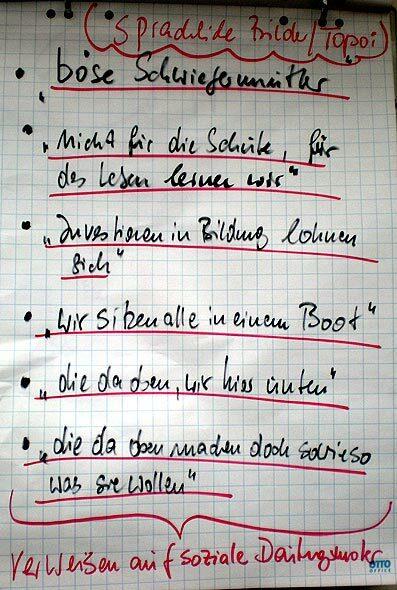 (Sprachliche Bilder/Topoi)
• „böse Schwiegermutter"
• „Nicht für die Schule, für
das Leben lernen wir"
• „Investieren in Bildung lohnen
sich"
• „wir sitzen alle in einem Boot"
• „die da oben, wir hier unten"
• „die da oben machen doch sowieso
was sie wollen"
verweisen auf soziale Deutungsmuster
OTTO
OFFICE